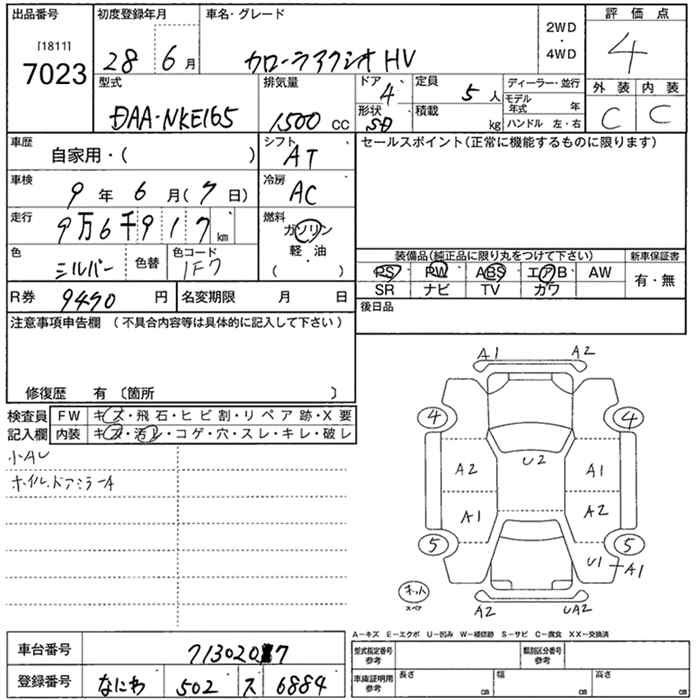 出品番号 [1811] 7023
初度登録年月 28 6月
車名・グレード カローラアクシオ HV
2WD・4WD
評価点 4
外装 C 内装 C
型式 DAA-NKE165
排気量 1500 CC
ドア 4
形状 SD
定員 5人
積載 kg
ディーラー・並行
モデル年式 年
ハンドル 左・右
車歴 自家用・( )
シフト AT
セールスポイント(正常に機能するものに限ります)
車検 9年 6月(7日)
冷房 AC
走行 9万6千917km
燃料 ガソリン 軽・油 ( )
色 シルバー 色替
色コード 1F7
装備品(純正品に限り丸をつけて下さい)
新車保証書 有・無
PS PW ABS エアB AW
SR ナビ TV カワ
R券 9490円
名変期限 月 日
後日品
注意事項申告欄 (不具合内容等は具体的に記入して下さい)
修復歴 有 〔箇所 〕
検査員記入欄
FW キズ・飛石・ヒビ割・リペア跡・X要
内装 キズ・汚レ・コゲ・穴・スレ・キレ・破レ
小AU
ホイル.ドアミラーA
A1 A2
4 4
A2 U2 A1
A1 A2
5 5
U1 A1
スペア
A2 UA2
A-キズ E-エクボ U-凹み W-補修跡 S-サビ C-腐食 XX-交換済
車台番号
登録番号 なにわ 502 ス 6884
型式指定番号 参考
類別区分番号 参考
車庫証明用 参考 長さ cm 幅 cm 高さ cm